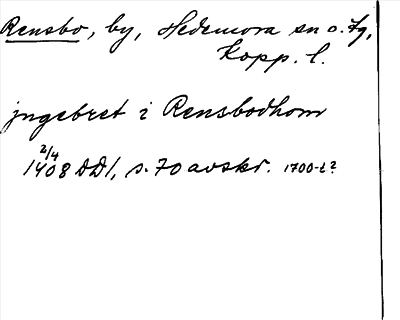 Rensbo, by, Hedemora sn o. tg,
Kopp. l.
jngebret i Rensbodhom
2/4
1408 DD1, s. 70 avskr. 1700-t?